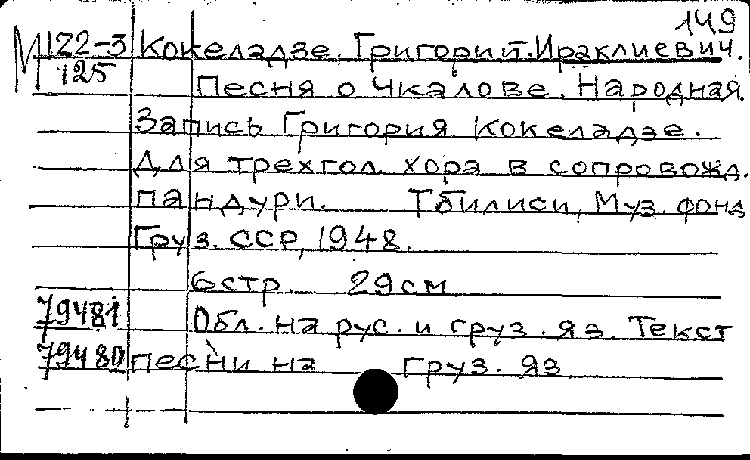 149
М 1Z2-3 Кокеладзе. Григорий. Ираклиевич.
125 Песня о Чкалове. Народная.
Запись Григория Кокеладзе.
Для трехгол. хора в сопровожд.
пандури. Тбилиси, Муз. фонд
Груз. ССР, 1948.
6стр. 29см
79481 Обл. на рус. и груз. яз. Текст
79480 песни на груз. яз